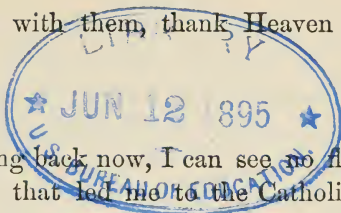 with them, thank Heaven
LIBRARY
★ JUN 12 1895 ★
U.S. BUREAU OF EDUCATION.
ng back now, I can see no fl
that led me to the Catholi